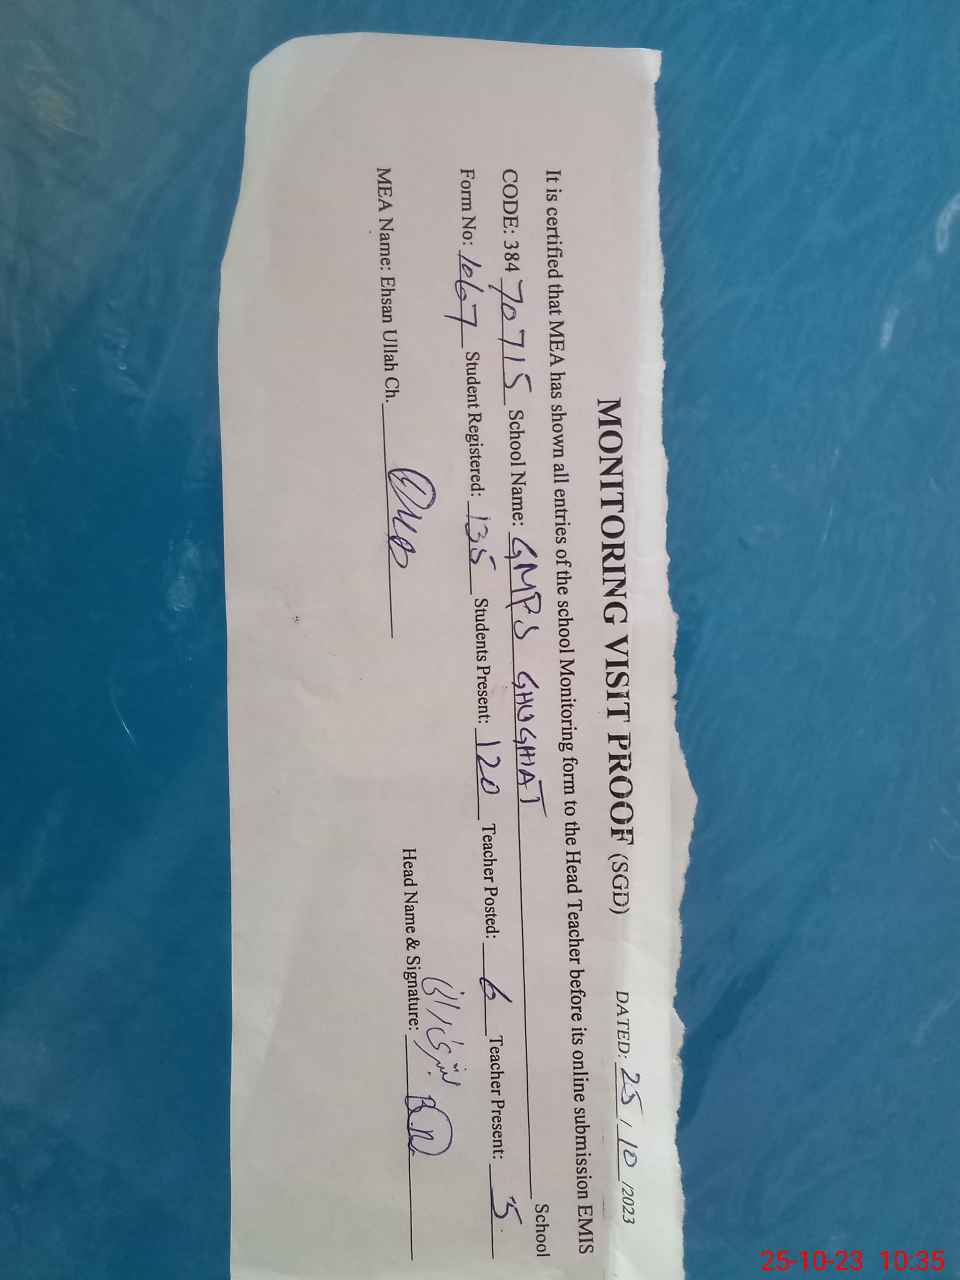 MONITORING VISIT PROOF (SGD) DATED: 25/10/2023
It is certified that MEA has shown all entries of the school Monitoring form to the Head Teacher before its online submission EMIS
CODE: 384 70715 School Name: GMPS GHUGHIAT School
Form No: 1067 Student Registered: 135 Students Present: 120 Teacher Posted: 6 Teacher Present: 5
MEA Name: Ehsan Ullah Ch. Head Name & Signature:
25-10-23 10:35